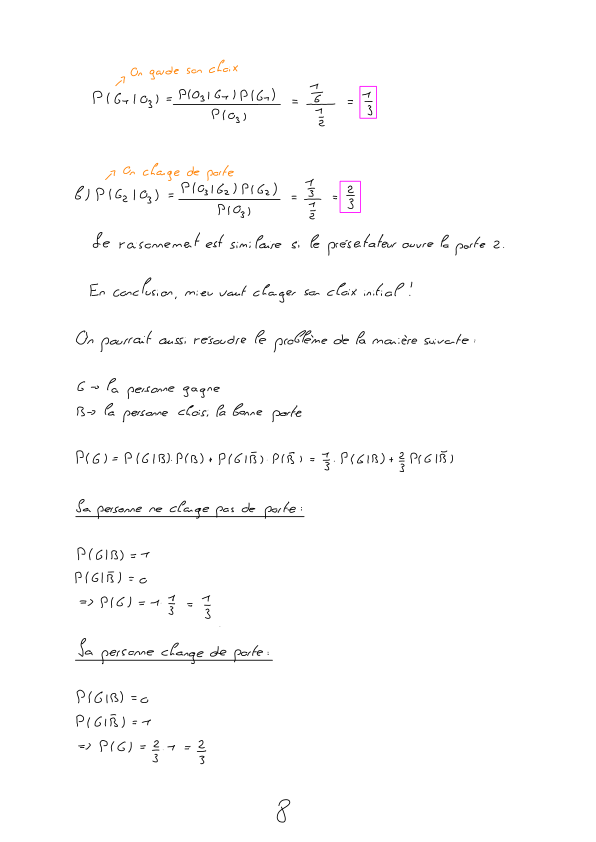 On garde son choix
P(G1|O3) = P(O3|G1)P(G1) / P(O3) = 1/6 / 1/2 = 1/3
On change de porte
b) P(G2|O3) = P(O3|G2)P(G2) / P(O3) = 1/3 / 1/2 = 2/3
Le raisonnement est similaire si le présetateur ouvre la porte 2.
En conclusion, mieu vaut changer son choix initial !
On pourrait aussi résoudre le problème de la manière suivante :
G → la personne gagne
B → la personne choisi la bonne porte
P(G) = P(G|B)·P(B) + P(G|B̄) P(B̄) = 1/3 · P(G|B) + 2/3 P(G|B̄)
La personne ne change pas de porte :
P(G|B) = 1
P(G|B̄) = 0
=> P(G) = 1 · 1/3 = 1/3
La personne change de porte :
P(G|B) = 0
P(G|B̄) = 1
=> P(G) = 2/3 · 1 = 2/3
8